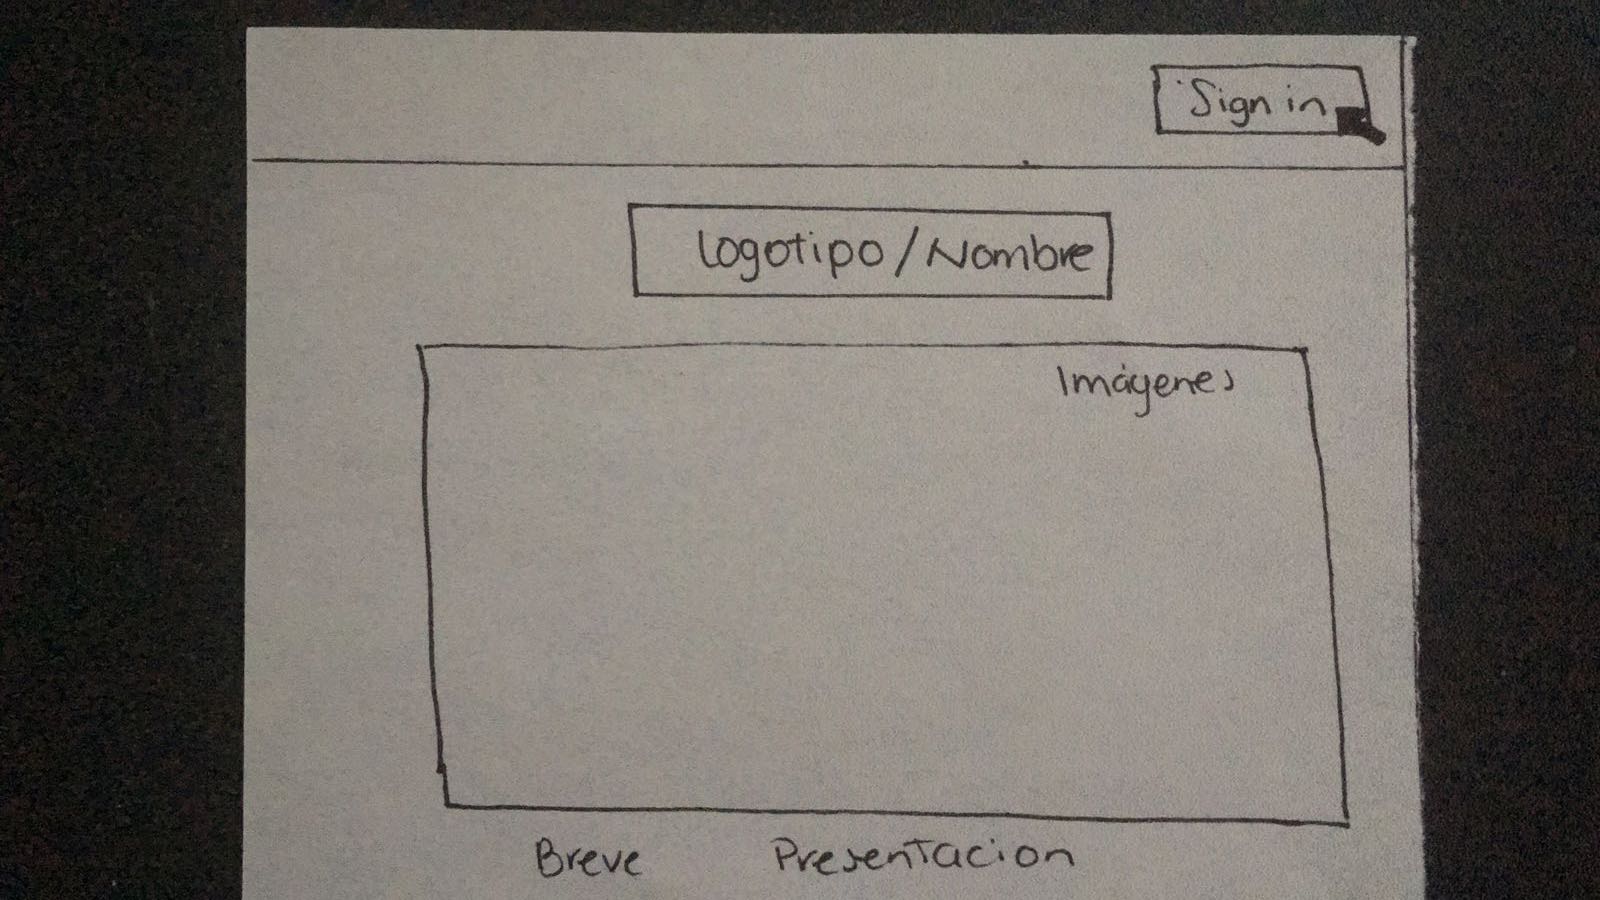 Sign in
Logotipo/Nombre
Imágenes
Breve Presentacion